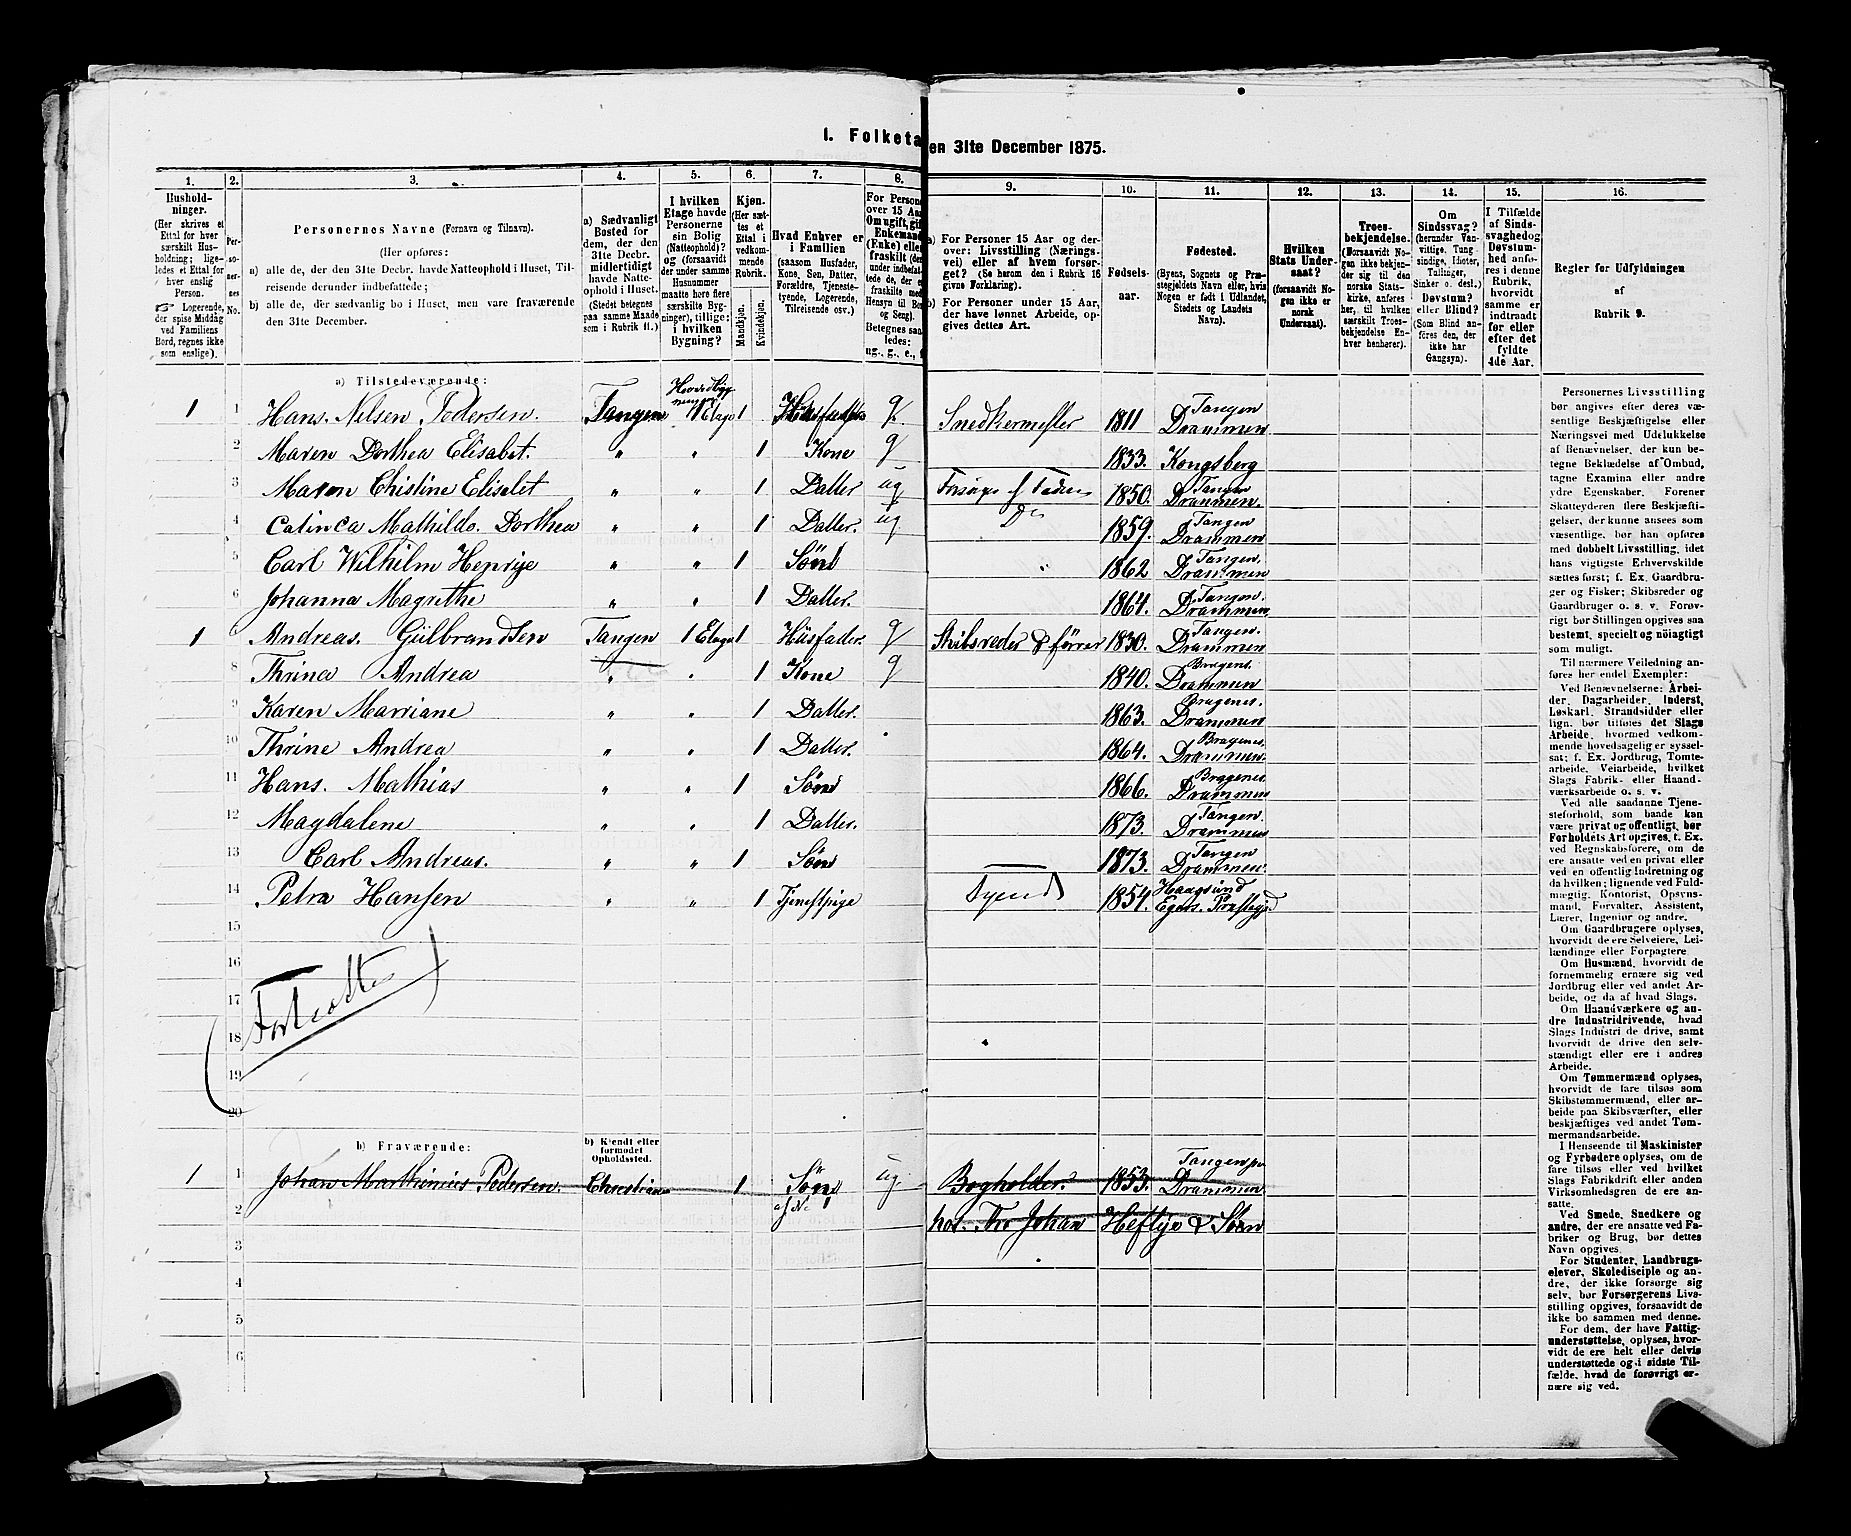 I. Folketa en 31te December 1875.
1. 2. 3. 4. 5. 6. 7. 8. 9. 10. 11. 12. 13. 14. 15. 16.
Hushold-
ninger.
(Her skrives et
Ettal for hver
særskilt Hus-
holdning; lige-
ledes et Ettal for
hver enslig
Person.
Logerende,
der spise Middag
ved Familiens
Bord, regnes ikke
som enslige).
Per-
so-
ner-
nes
No.
Personernes Navne (Fornavn og Tilnavn).
(Her opføres:
a) alle de, der den 31te Decbr. havde Natteophold i Huset, Til-
reisende derunder indbefattede;
b) alle de, der sædvanlig bo i Huset, men vare fraværende
den 31te December.
a) Sædvanligt
Bosted for
dem, der den
31te Decbr.
midlertidigt
havde Natte-
ophold i Huset.
(Stedet betegnes
paa samme Maade
som i Rubrik 11.)
I hvilken
Etage havde
Personerne
sin Bolig
(Natteophold)?
og (forsaavidt
der under samme
Husnummer
maatte høre flere
særskilte Byg-
ninger), tillige:
i hvilken
Bygning?
Kjøn.
(Her sæt-
tes et
Ettal i
vedkom-
mende
Rubrik.
Mandkjøn.
Kvindekjøn.
Hvad Enhver er
i Familien
(saasom Husfader,
Kone, Søn, Datter,
Forældre, Tjeneste-
tyende, Logerende,
Tilreisende osv.)
For Persone
over 15 Aar
Om ugift, gift
Enkemand
(Enke) eller
fraskilt (der
under indbefat-
tede de, der er
fraskilte med
Hensyn til Bo
og Seng).
Betegnes saa-
ledes:
ug., g., e., f
a) For Personer 15 Aar og der-
over: Livsstilling (Nærings-
vei) eller af hvem forsør-
get? (Se herom den i Rubrik 16
givne Forklaring).
b) For Personer under 15 Aar,
der have lønnet Arbeide, op-
gives dettes Art.
Fødsels-
aar.
Fødested.
(Byens, Sognets og Præ-
stegjeldets Navn eller, hvis
Nogen er født i Udlandet,
Stedets og Landets
Navn).
Hvilken
Stats Under-
saat?
(forsaavidt No-
gen ikke er
norsk
Undersaat).
Troes-
bekjendelse.
(forsaavidt No-
gen ikke bekjen-
der sig til den
norske Stats-
kirke, anføres
her, til hvilken
særskilt Troes-
bekjendelse En-
hver henhører).
Om
Sindssvag?
(herunder Van-
vittige, Tung-
sindige, Idioter,
Tullinger,
Sinker o. desl.)
Døvstum?
eller Blind?
(Som Blind an-
føres den, der
ikke har
Gangsyn).
I Tilfælde
af Sinds-
svaghed og
Døvstum-
hed anfø-
res i denne
Rubrik,
hvorvidt
samme er
indtraadt
før eller
efter det
fyldte
4de Aar.
Regler for Udfyldningen
af
Rubrik 9.
a) Tilstedeværende:
1 1 Hans. Nilsen Pedersen. Tangen 1 Etage 1 Husfader g. Snedkermester 1811 Tangen Drammen
2 Maren Dorthea Elisabet. " " 1 Kone g 1833. Kongsberg
3 Maren Christine Elisabet " " 1 Datter ug Forsørges af Faderen 1850. Tangen Drammen.
4 Catinca Mathilde. Dorthea " " 1 Datter. ug Do 1859. Tangen Drammen
5 Carl Wilhilm Henrije " " 1 Søn " 1862 Tangen. Drammen
6 Johanna Magrethe " " 1 Datter. 1864. Tangen. Drammen
1 7 Andreas. Gulbrandsen Tangen 1 Etage 1 Husfader. g Skibsreder & fører 1830. Tangen. Drammen
8 Thrina Andrea " " 1 Kone g 1840. Bragens. Drammen
9 Karen Marriane " " 1 Datter. 1863. Bragenes. Drammen
10 Thrine Andrea " " 1 Datter. 1864. Bragenes. Drammen.
11 Hans. Mathias " " 1 Søn 1866. Bragenes. Drammen
12 Magdalene " " 1 Datter. 1873. Tangen. Drammen
13 Carl Andreas. " " 1 Søn 1873. Tangen Drammen.
14 Petra Hansen " " 1 Tjenestpige Tyende 1854. Haagsund Egers. Præstegjd
15
16
17
18
19
20
(Fortsættes)
b) Fraværende:
b) Kjendt eller
formodet
Opholdssted.
1 1 Johan Marthinius Pedersen. Christiania 1 Søn af No 1 ug. Bogholder. 1853. Tangen pr Drammen.
2 hos. Tho Johan Heftye & Søn
3
4
5
6
Personernes Livsstilling
bør angives efter deres væ-
sentlige Beskjæftigelse eller
Næringsvei med Udelukkelse
af Benævnelser, der kun be-
tegne Beklædelse af Ombud,
tagne Examina eller andre
ydre Egenskaber. Forener
Skatteyderen flere Beskjæfti-
gelser, der kunne ansees som
væsentlige, bør han opføres
med dobbelt Livsstilling, idet
hans vigtigste Erhvervskilde
sættes først; f. Ex. Gaardbru-
ger og Fisker; Skibsreder og
Gaardbruger o. s. v. Forøv-
rigt bør Stillingen opgives saa
bestemt, specielt og nöiagtigt
som muligt.
Til nærmere Veiledning an-
føres her endel Exempler:
Ved Benævnelserne: Arbei-
der, Dagarbeider, Inderst,
Løskarl, Strandsidder eller
lign. bør tilføies det Slags
Arbeide, hvormed vedkom-
mende hovedsagelig er syssel-
sat; f. Ex. Jordbrug, Tomte-
arbeide, Veiarbeide, hvilket
Slags Fabrik- eller Haand-
værksarbeide o. s. v.
Ved alle saadanne Tjene-
steforhold, som baade kan
være privat og offentligt, bør
Forholdets Art opgives, t. Ex.
ved Regnskabsførere, om de
ere ansatte ved en privat eller
ved en offentlig Indretning og
da hvilken; lignende ved Fuld-
mægtig, Kontorist, Opsyns-
mand, Forvalter, Assistent,
Lærer, Ingeniør og andre.
Om Gaardbrugere oplyses,
hvorvidt de ere Selveiere, Lei-
lændinge eller Forpagtere.
Om Husmænd, hvorvidt de
fornemmelig ernære sig ved
Jordbrug eller ved andet Ar-
beide, og da af hvad Slags.
Om Haandværkere og an-
dre Industridrivende, hvad
Slags Industri de drive, samt
hvorvidt de drive den selv-
stændigt eller ere i andres
Arbeide.
Om Tømmermænd oplyses,
hvorvidt de fare tilsøs som
Skibstømmermænd, eller ar-
beide paa Skibsværfter, eller
beskjæftiges ved andet Tøm-
mermandsarbeide.
I Henseende til Maskinister
og Fyrbødere oplyses, om de
fare tilsøs eller ved hvilket
Slags Fabrikdrift eller anden
Virksomhedsgren de ere an-
satte.
Ved Smede, Snedkere og
andre, der ere ansatte ved Fa-
briker og Brug, bør dettes
Navn opgives.
For Studenter, Landbrugs-
elever, Skoledisciple og an-
dre, der ikke forsørge sig
selv, bør Forsørgerens Livs-
stilling opgives, forsaavidt de
ikke bo sammen med denne.
For dem, der have Fattig-
understøttelse, oplyses, hvor-
vidt de ere helt eller delvis
understøttede og i sidste Til-
fælde, hvad de forøvrigt er-
nære sig ved.